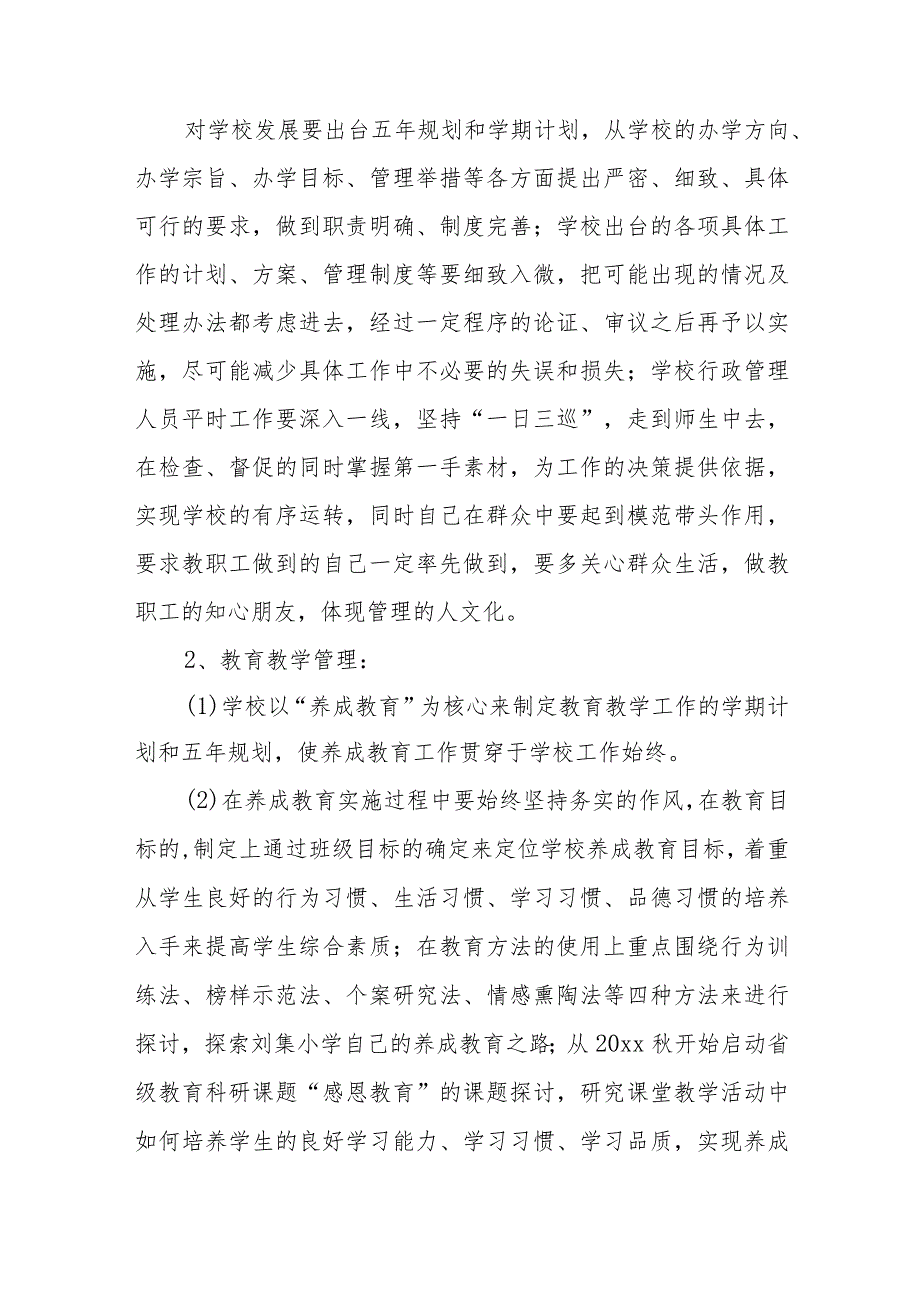 对学校发展要出台五年规划和学期计划，从学校的办学方向、
办学宗旨、办学目标、管理举措等各方面提出严密、细致、具体
可行的要求，做到职责明确、制度完善；学校出台的各项具体工
作的计划、方案、管理制度等要细致入微，把可能出现的情况及
处理办法都考虑进去，经过一定程序的论证、审议之后再予以实
施，尽可能减少具体工作中不必要的失误和损失；学校行政管理
人员平时工作要深入一线，坚持“一日三巡”，走到师生中去，
在检查、督促的同时掌握第一手素材，为工作的决策提供依据，
实现学校的有序运转，同时自己在群众中要起到模范带头作用，
要求教职工做到的自己一定率先做到，要多关心群众生活，做教
职工的知心朋友，体现管理的人文化。
2、教育教学管理：
(1)学校以“养成教育”为核心来制定教育教学工作的学期计
划和五年规划，使养成教育工作贯穿于学校工作始终。
(2)在养成教育实施过程中要始终坚持务实的作风，在教育目
标的,制定上通过班级目标的确定来定位学校养成教育目标，着重
从学生良好的行为习惯、生活习惯、学习习惯、品德习惯的培养
入手来提高学生综合素质；在教育方法的使用上重点围绕行为训
练法、榜样示范法、个案研究法、情感熏陶法等四种方法来进行
探讨，探索刘集小学自己的养成教育之路；从20xx秋开始启动省
级教育科研课题“感恩教育”的课题探讨，研究课堂教学活动中
如何培养学生的良好学习能力、学习习惯、学习品质，实现养成